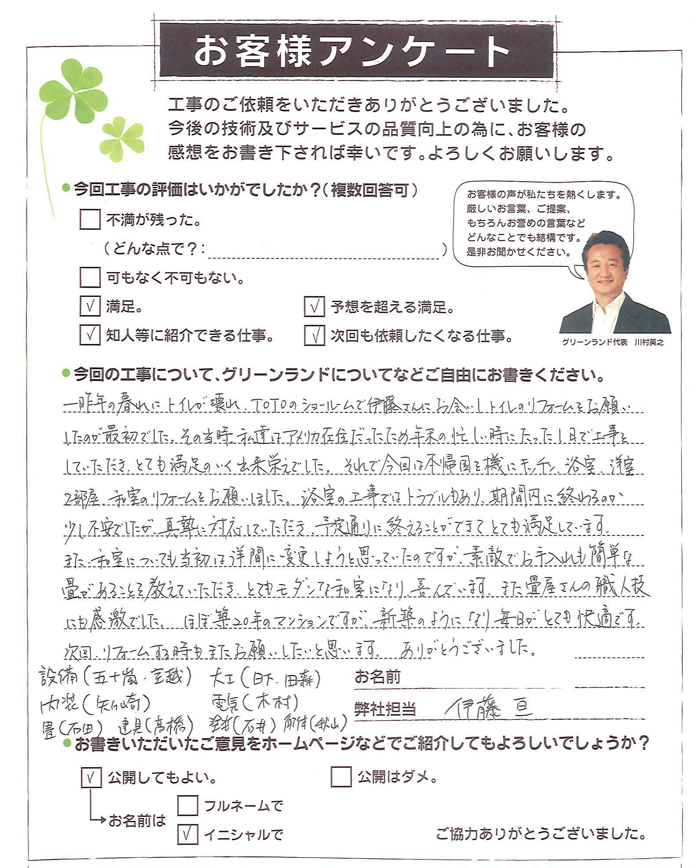 お客様アンケート
工事のご依頼をいただきありがとうございました。
今後の技術及びサービスの品質向上の為に、お客様の
感想をお書き下されば幸いです。よろしくお願いします。
●今回工事の評価はいかがでしたか？（複数回答可）
お客様の声が私たちを熱くします。
厳しいお言葉、ご提案、
もちろんお誉めの言葉など
どんなことでも結構です。
是非お聞かせください。
不満が残った。
（どんな点で？：　）
可もなく不可もない。
✓ 満足。 ✓ 予想を超える満足。
✓ 知人等に紹介できる仕事。 ✓ 次回も依頼したくなる仕事。
グリーンランド代表　川村英之
●今回の工事について、グリーンランドについてなどご自由にお書きください。
一昨年の暮れにトイレが壊れ、TOTOのショールームで伊藤さんにお会いしトイレのリフォームをお願い
したのが最初でした。その当時、私達はアメリカ在住だったため年末の忙しい時にたった1日で工事を
していただき、とても満足のいく出来栄えでした。それで今回は本帰国を機にキッチン、浴室、洋室
2部屋、和室のリフォームをお願いしました。浴室の工事ではトラブルもあり、期間内に終わるのか
少し不安でしたが、真摯に対応していただき、予定通りに終えることができてとても満足しています。
また、和室についても当初は洋間に変更しようと思っていたのですが、素敵でお手入れも簡単な
畳があることを教えていただき、とてもモダンな和室になり、喜んでいます。また畳屋さんの職人技
にも感激でした。ほぼ築20年のマンションですが、新築のようになり毎日がとても快適です。
次回、リフォームする時もまたお願いしたいと思います。ありがとうございました。
設備(五十嵐・宮越) 大工(日下・田森) お名前
内装(矢ヶ崎) 電気(木村) 弊社担当 伊藤 亘
畳(石田) 建具(高橋) (石井) (秋山)
●お書きいただいたご意見をホームページなどでご紹介してもよろしいでしょうか？
✓ 公開してもよい。 公開はダメ。
お名前は フルネームで
✓ イニシャルで
ご協力ありがとうございました。